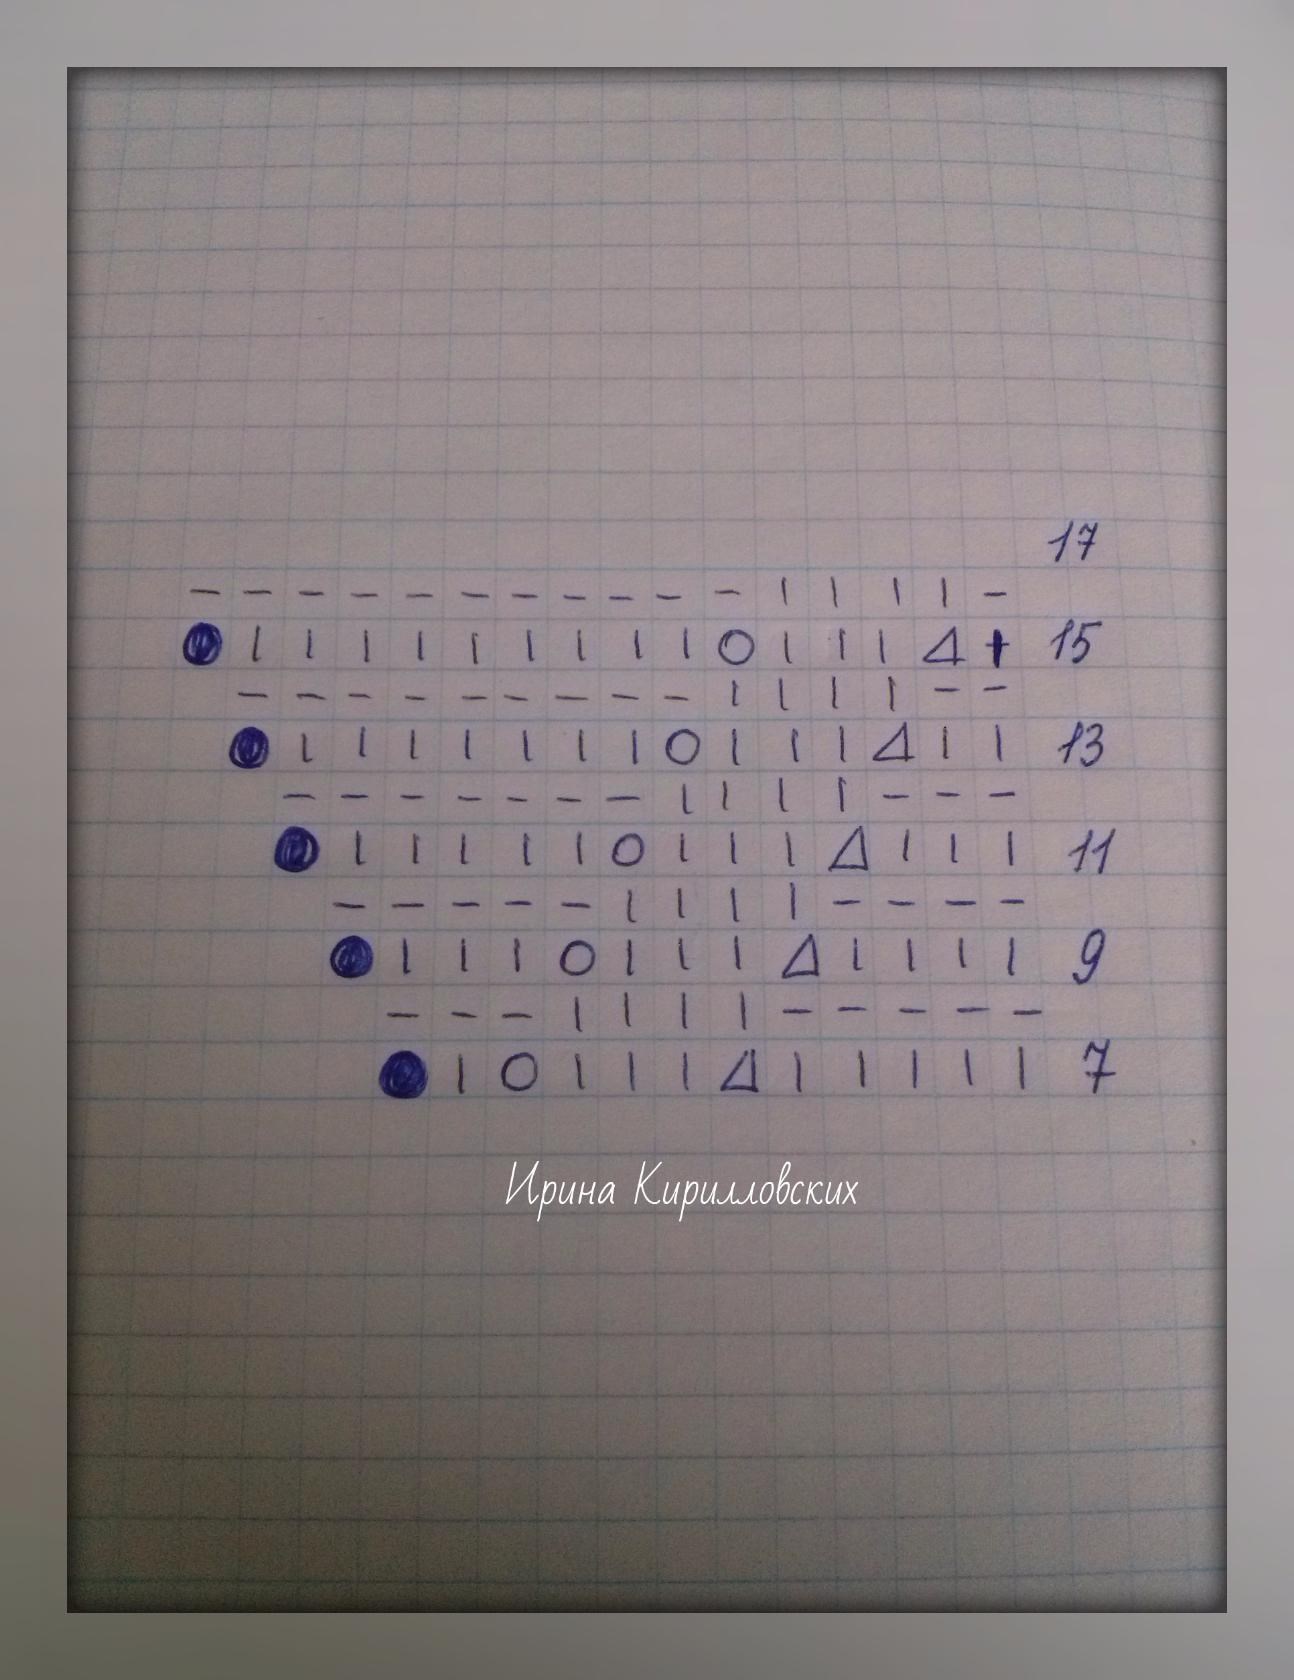 17
— — — — — — — — — — — | | | | —
● | | | | | | | | | O | | | △ + 15
— — — — — — — — — | | | | — —
● | | | | | | | O | | | △ | | 13
— — — — — — — | | | | — — —
● | | | | | O | | | △ | | | 11
— — — — — | | | | — — — —
● | | | O | | | △ | | | | 9
— — — | | | | — — — — —
● | O | | | △ | | | | | 7
Ирина Кирилловских